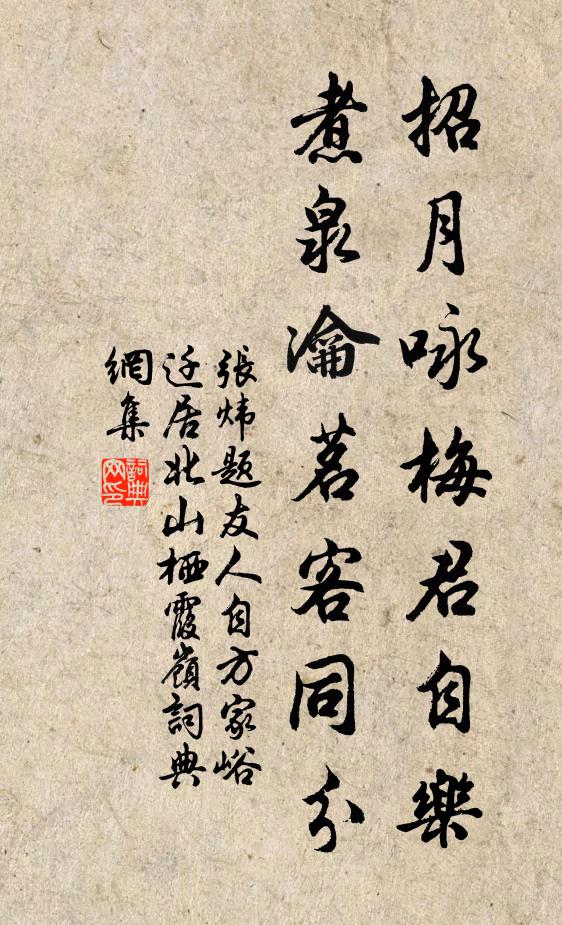 招月咏梅君自樂
煮泉瀹茗客同分
張炜题友人自方家峪
迁居北山栖霞嶺詞典
網集
詞典
网印